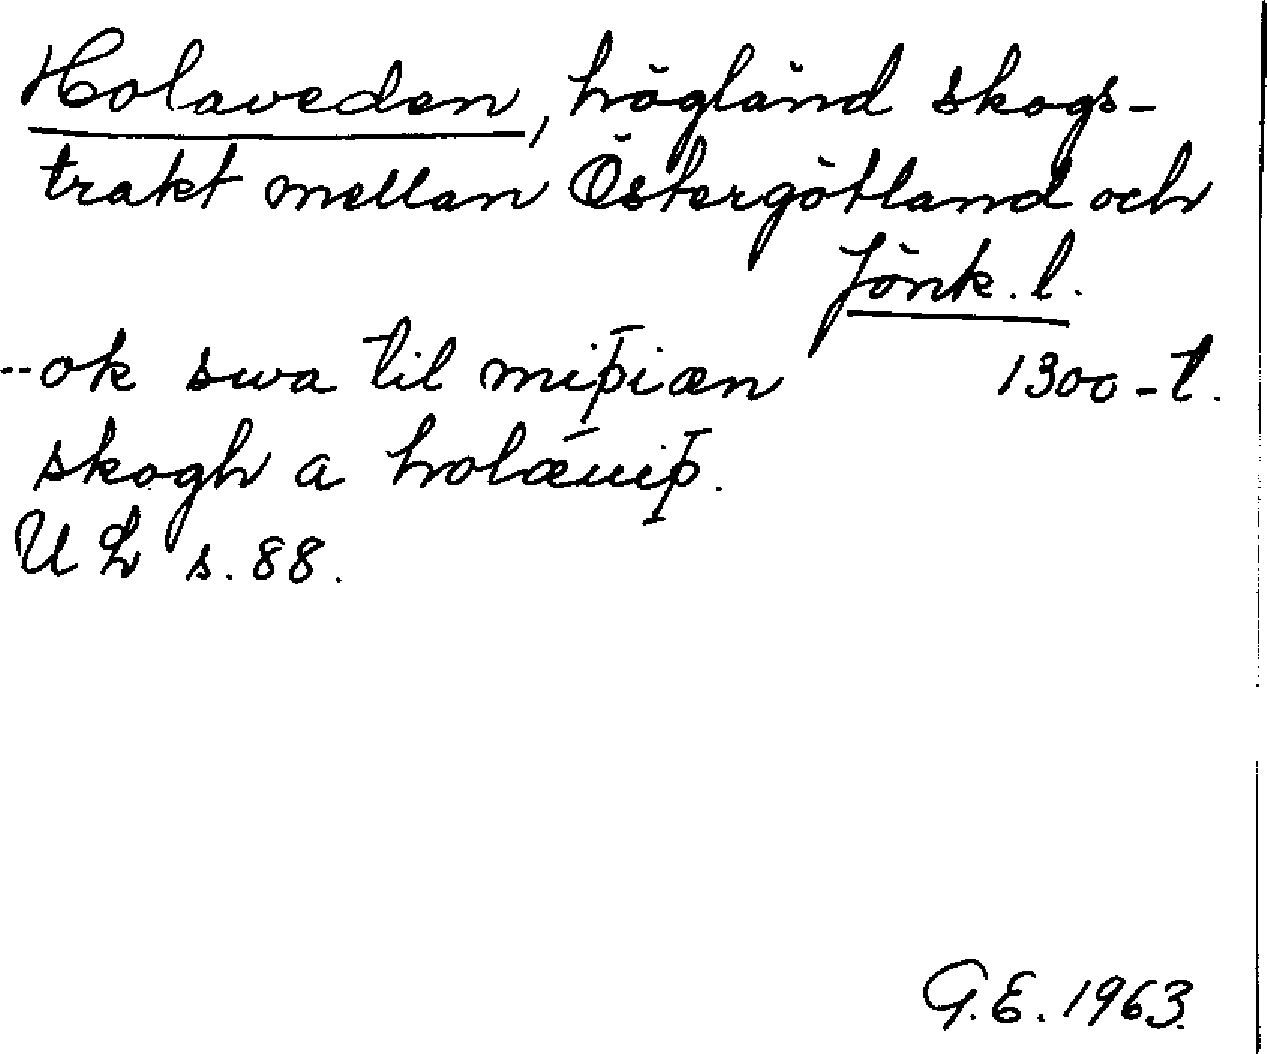 Holaveden, högländ skogs-
trakt mellan Östergötland och
Jönk. l.
-- ok swa til miþiæn 1300-t.
skogh a holǽuiþ.
U L s. 88.
G.E. 1963.